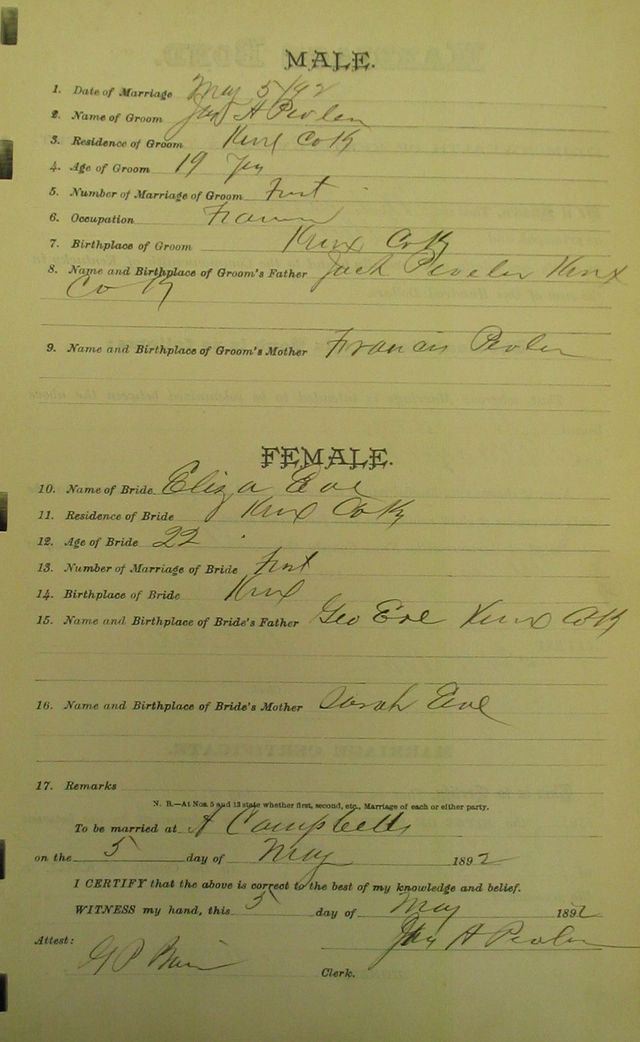 MALE.
1. Date of Marriage May 5/92
2. Name of Groom Jas A Pevler
3. Residence of Groom Knx Co Ky
4. Age of Groom 19 Yrs
5. Number of Marriage of Groom First
6. Occupation Farmer
7. Birthplace of Groom Knox Co Ky
8. Name and Birthplace of Groom's Father Jack Peveler Knx
Co Ky
9. Name and Birthplace of Groom's Mother Francis Pevler
FEMALE.
10. Name of Bride Eliza Eve
11. Residence of Bride Knx Co Ky
12. Age of Bride 22
13. Number of Marriage of Bride First
14. Birthplace of Bride Knx
15. Name and Birthplace of Bride's Father Geo Eve Knx Co Ky
16. Name and Birthplace of Bride's Mother Sarah Eve
17. Remarks
N. B.—At Nos. 5 and 13 state whether first, second, etc., Marriage of each or either party.
To be married at A Campbells
on the 5 day of May 1892
I CERTIFY that the above is correct to the best of my knowledge and belief.
WITNESS my hand, this 5 day of May 1892
Jas A Pevler
Attest:
G P
Clerk.